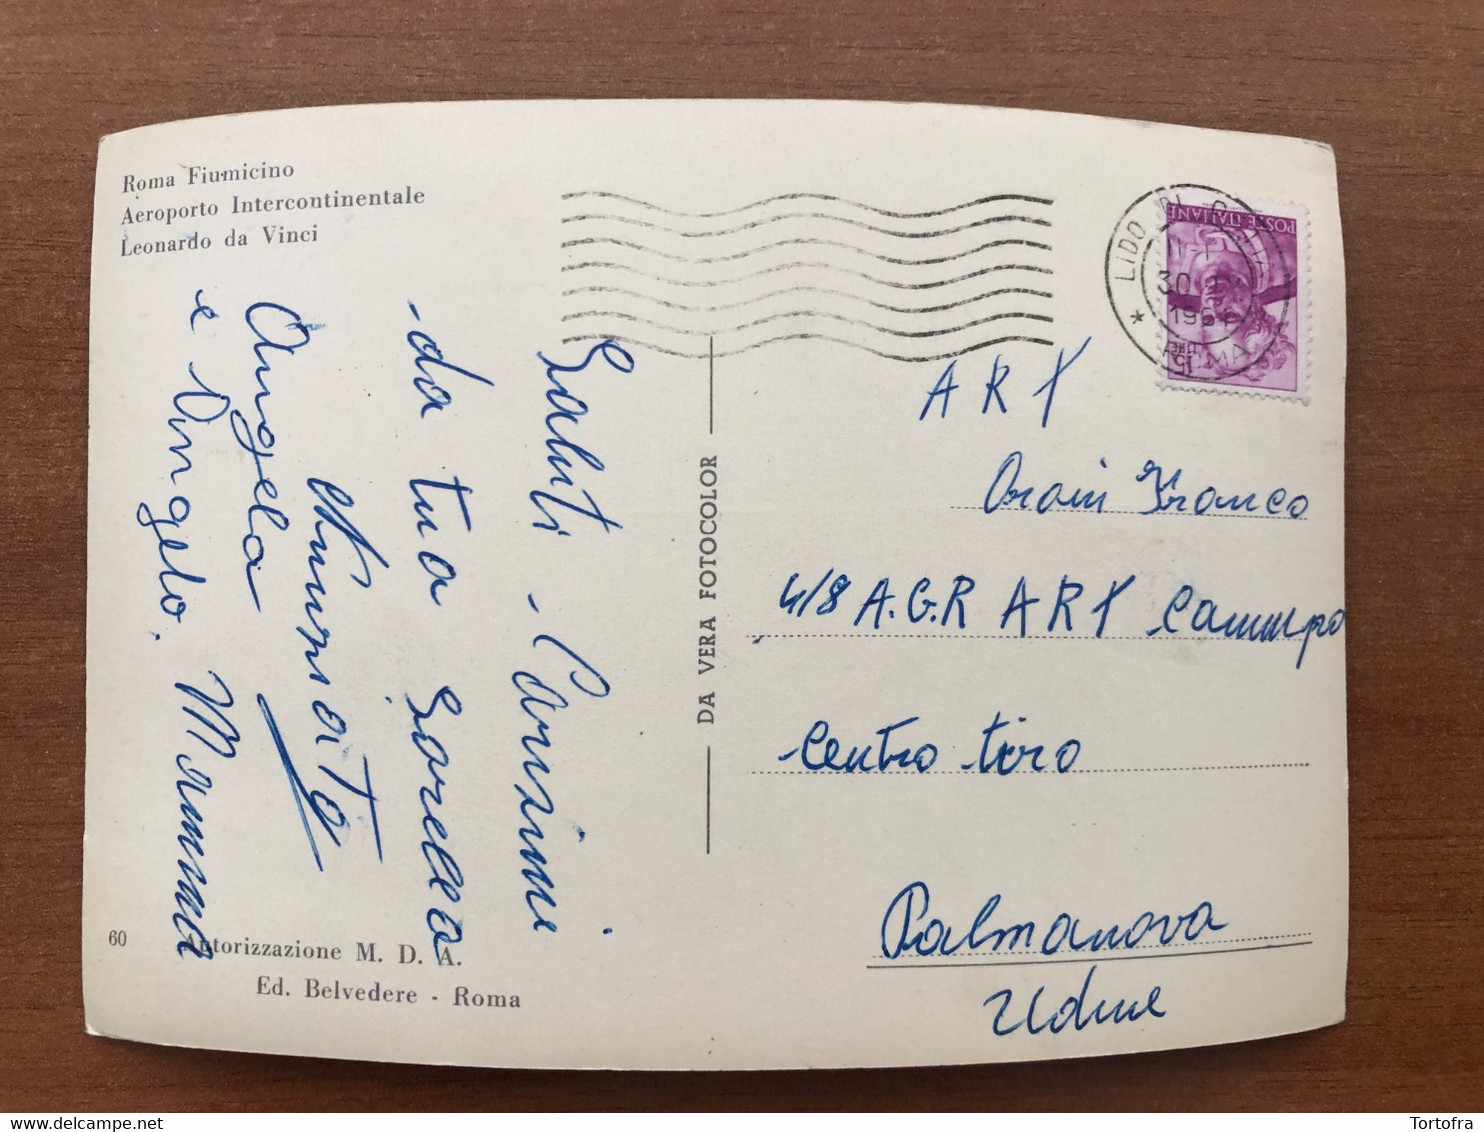 Roma Fiumicino
Aeroporto Intercontinentale
Leonardo da Vinci
Saluti
da tua Sorella
Nunziata
Angela
e Angelo. Mamma
60
Autorizzazione M. D. A.
Ed. Belvedere - Roma
DA VERA FOTOCOLOR
LIDO DI
30
196
ROMA
POSTE ITALIANE
LIRE 15
ART
Franco
4/8 A.G.R ART Campo
Centro tiro
Palmanova
Udine
Tortofra